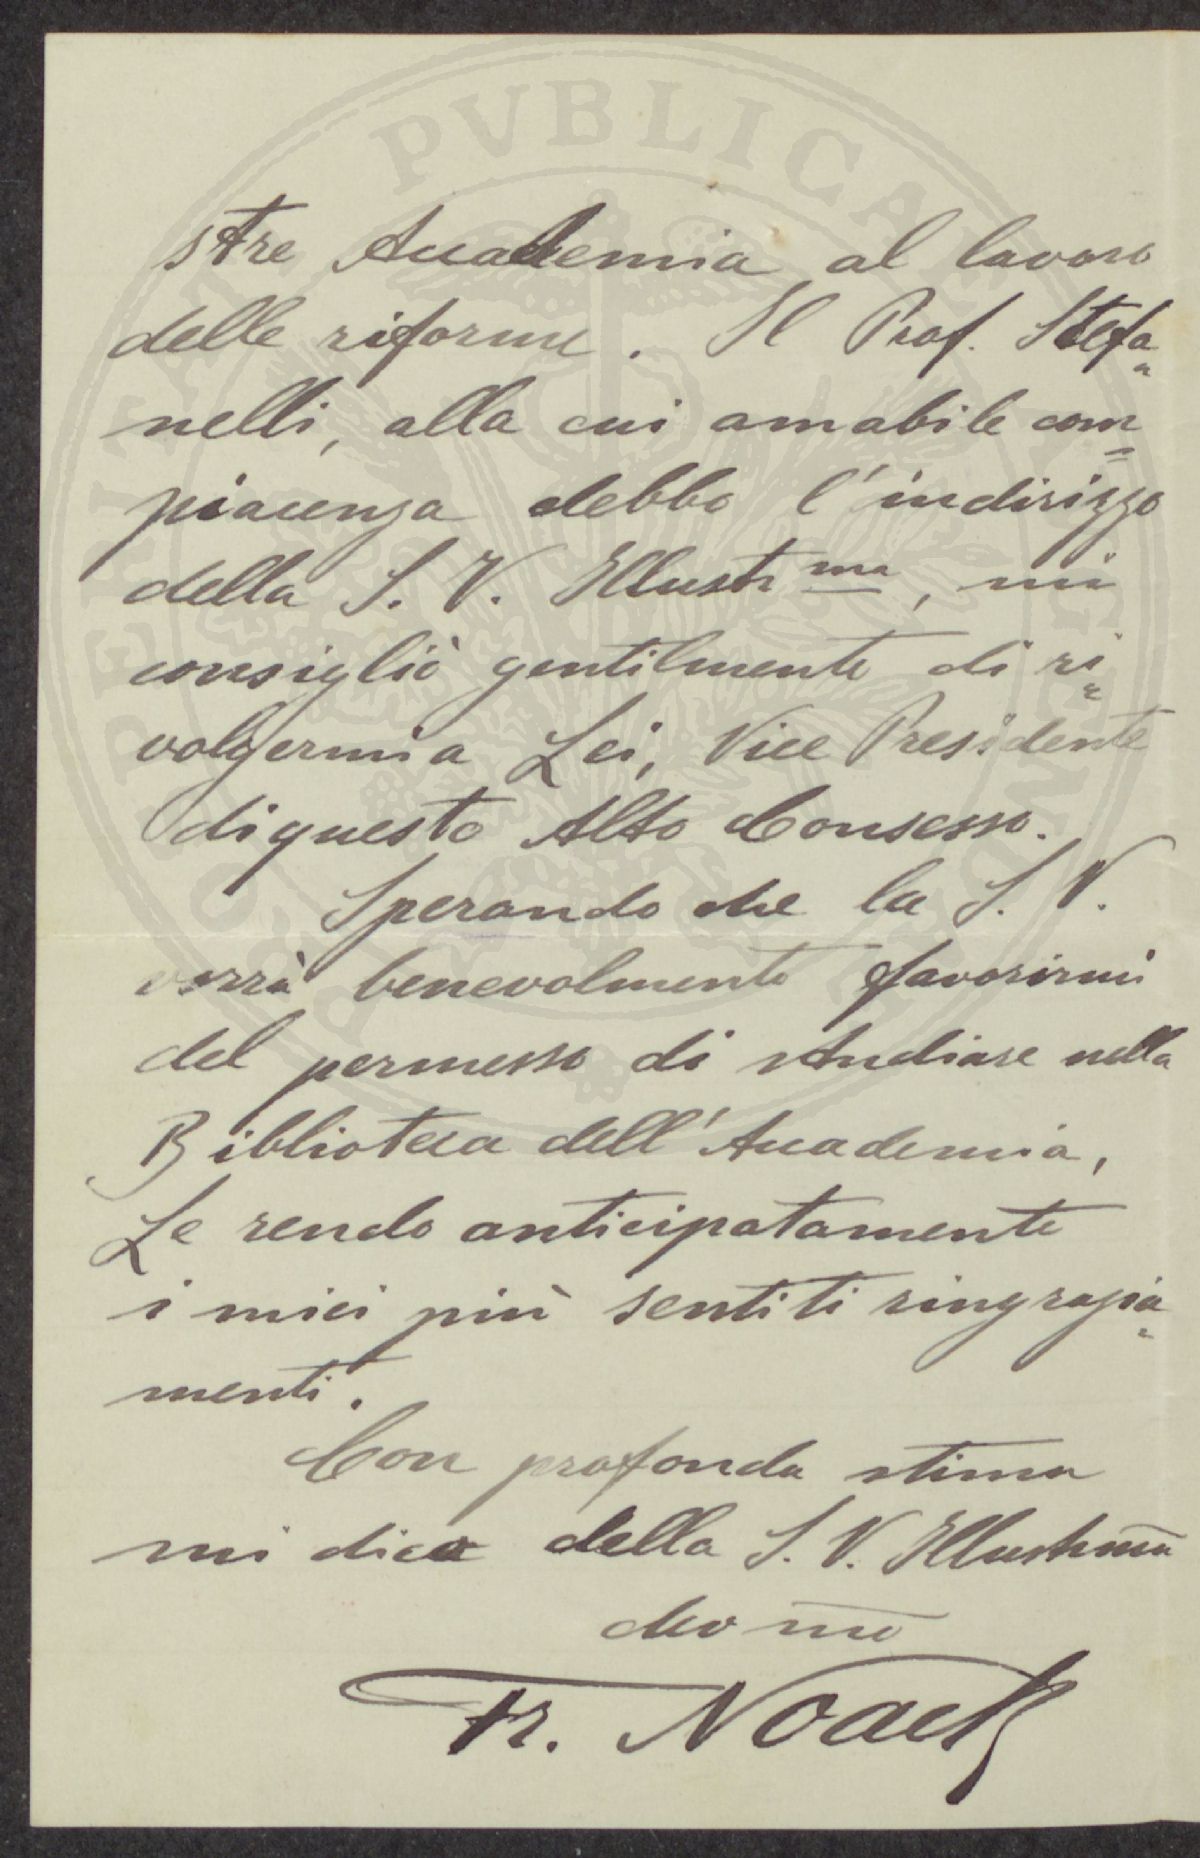 stre Accademia al lavoro
delle riforme. Il Prof. Stefa=
nelli, alla cui amabile com=
piacenza debbo l'indirizzo
della S. V. Illustr ma, mi
consigliò gentilmente di ri=
volgermi a Lei, Vice Presidente
di questo Alto Consesso.
Sperando che la S. V.
vorrà benevolmente favorirmi
del permesso di studiare nella
Biblioteca dell'Accademia,
Le rendo anticipatamente
i miei più sentiti ringrazia=
menti.
Con profonda stima
mi dico della S. V. Illustrma
devomo
Fr. Noack